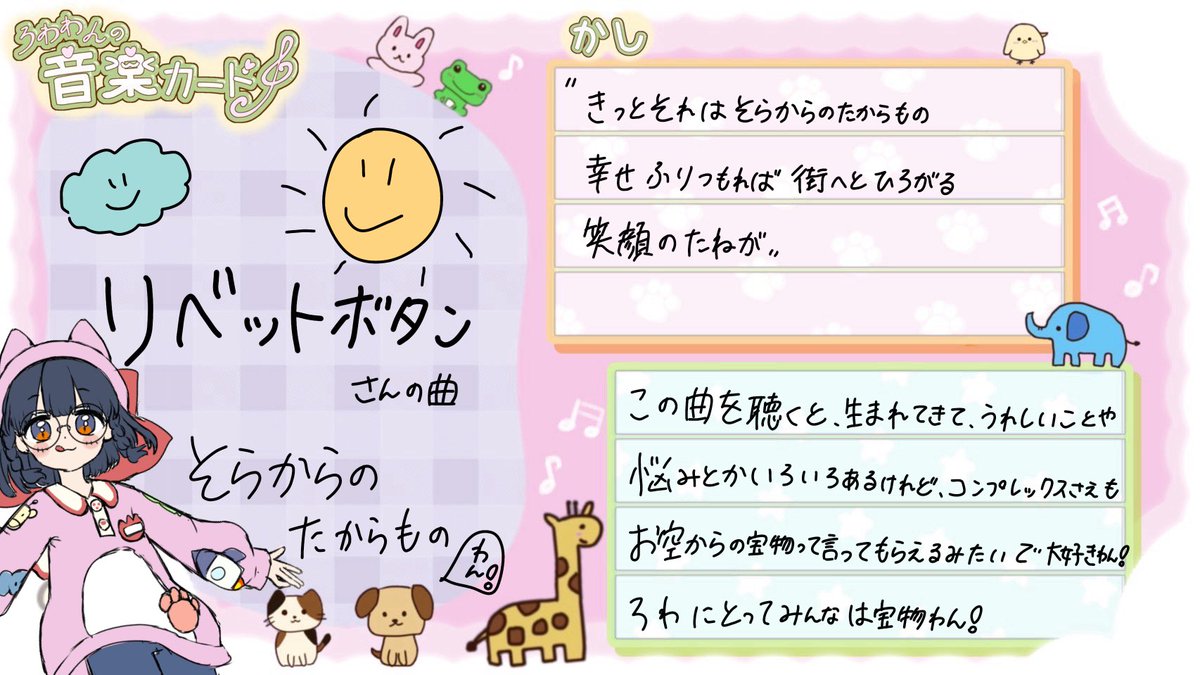 ろわわんの
音楽カード
リベットボタン
さんの曲
そらからの
たからもの
わん!
かし
"きっとそれはそらからのたからもの
幸せふりつもれば 街へとひろがる
笑顔のたねが"
この曲を聴くと、生まれてきて、うれしいことや
悩みとかいろいろあるけれど、コンプレックスさえも
お空からの宝物って言ってもらえるみたいで大好きわん!
ろわにとってみんなは宝物わん!